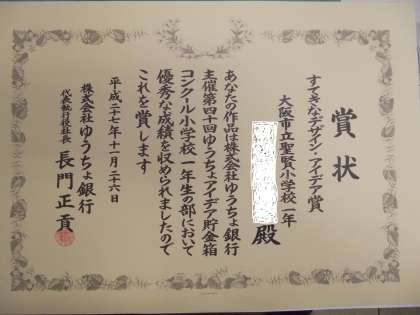 賞状
すてきなデザイン・アイデア賞
大阪市立聖賢小学校一年
殿
あなたの作品は株式会社ゆうちょ銀行
主催第四十回ゆうちょアイデア貯金箱
コンクール小学校一年生の部において
優秀な成績を収められましたので
これを賞します
平成二十七年十一月二十六日
株式会社ゆうちょ銀行
代表執行役社長 長門正貢